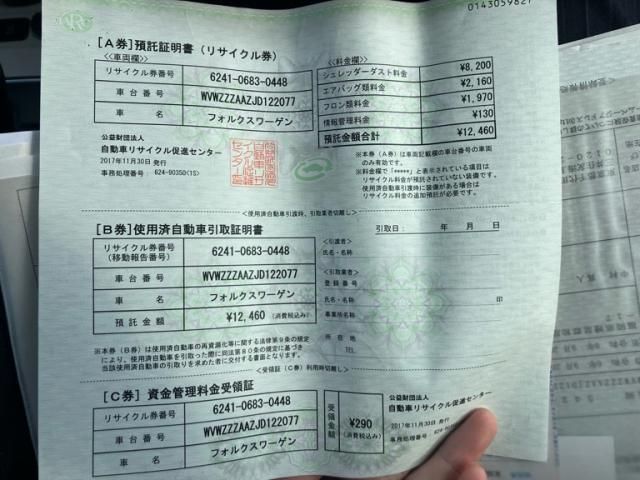 0143059827
[A券]預託証明書(リサイクル券)
≪車両欄≫
リサイクル券番号 6241-0683-0448
車台番号 WVWZZZAAZJD122077
車名 フォルクスワーゲン
公益財団法人
自動車リサイクル促進センター
2017年11月30日 発行
事務処理番号: 624-90350(1S)
≪料金欄≫
シュレッダーダスト料金 ¥8,200
エアバッグ類料金 ¥2,160
フロン類料金 ¥1,970
情報管理料金 ¥130
預託金額合計 ¥12,460
※本券(A券)は車両記載欄の車台番号の車両
のみ有効です。
※料金欄で「*****」と表示されている項目は
リサイクル料金が預託されていない装備です。
使用済自動車引渡時に装備がある場合は
リサイクル料金の追加預託が必要です。
<使用済自動車引渡時、引取業者切離し>
[B券]使用済自動車引取証明書
リサイクル券番号
(移動報告番号) 6241-0683-0448
車台番号 WVWZZZAAZJD122077
車名 フォルクスワーゲン
預託金額 ¥12,460 (消費税込み)
引取日: 年 月 日
<引渡者>
氏名・名称
<引取業者>
登録番号
氏名・名称 印
事業所名称
所在地
TEL
※本券(B券)は使用済自動車の再資源化等に関する法律第9条の規定
により、使用済自動車を引取った際に同法第80条の規定に基づき
当該使用済自動車の引取りを求めた者に交付する書面となります。
<受領証(C券)利用時切離し>
[C券]資金管理料金受領証
リサイクル券番号 6241-0683-0448
車台番号 WVWZZZAAZJD122077
車名 フォルクスワーゲン
受領金額 ¥290
(消費税込み)
公益財団法人
自動車リサイクル促進センター
2017年11月30日 発行
事務処理番号: